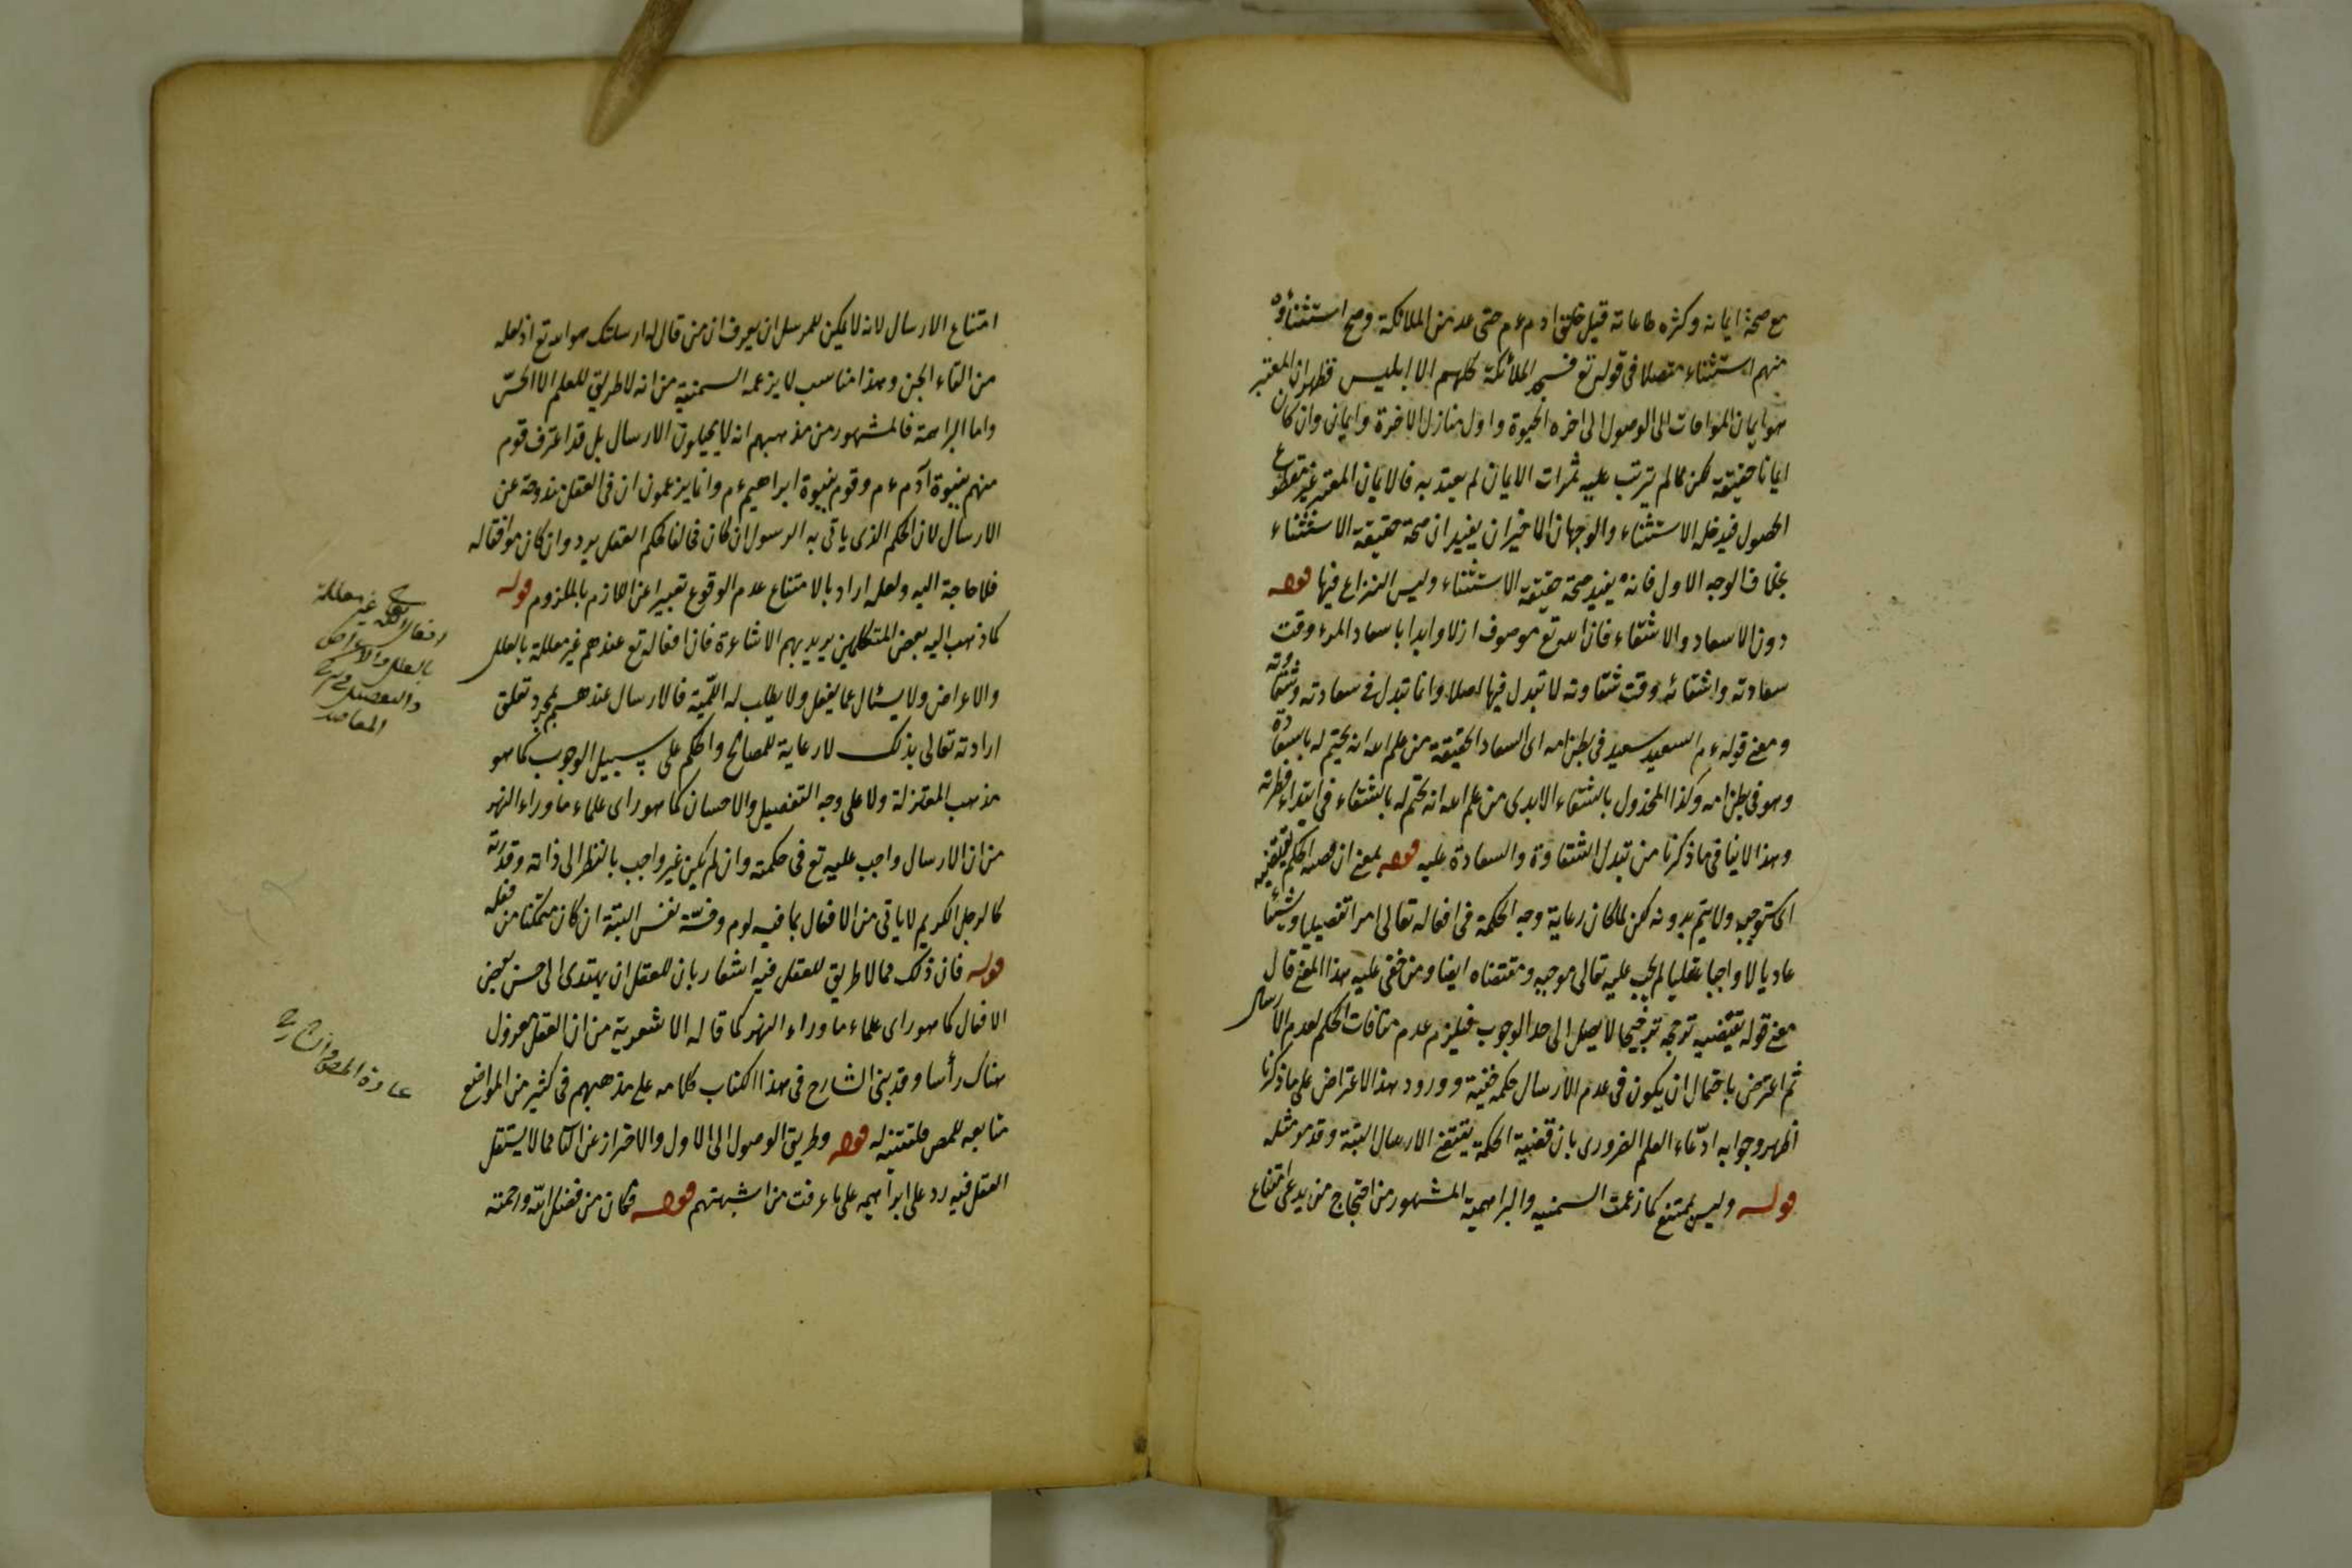 مع صحة ايمانه وكثرة طاعاته قبل خلق ادم ءم حتى عد من الملائكة وصح استثناؤه
منهم استثناء متصلا فى قوله تع فسجد الملائكة كلهم الا ابليس فظهر ان المعتبر
هو ايمان الموافات الى الوصول الى اخره الحيوة واول منازل الاخرة وايمانى وان كان
ايمانا حقيقة لكن لما لم يترتب عليه ثمرات الايمان لم يعتد به فالايمان المعتبر غير مقطوع
الحصول فيدخله الاستثناء والوجهان الاخيران يفيد ان صحة حقيقة الاستثناء
بخلاف الوجه الاول فانه يفيد صحة حقيقة الاستثناء وليس النزاع فيها قوله
دون الاسعاد والاشقاء فان الله تع موصوف ازلا وابدا باسعاد المرء وقت
سعادته واشقائه وقت شقاوته لا تبدل فيها اصلا وانما تبدل فى سعادته وشقاوته
ومعنى قوله ءم السعيد سعيد فى بطن امه اى السعاد الحقيقة من علم الله انه يختم له بالسعادة
وهو فى بطن امه وكذا المخذول بالشقاء الابدى من علم الله انه يختم له بالشقاء فى ابتداء فطرته
وهذا لا ينافى ما ذكرنا من تبدل الشقاوة والسعادة عليه قوله بمعنى ان قضية الحكمة يقتضيه
اى يستوجبه ولا يتم بدونه لكن لما كان رعاية وجه الحكمة فى افعاله تعالى امرا تفضيليا وشيئا
عاديا لا واجبا عقليا لم يجب عليه تعالى موجبه ومقتضاه ايضا ومن خفى عليه هذا المعنى قال
معنى قوله يقتضيه ترجحه ترجيحا لا يصل الى حد الوجوب فيلزم عدم منافات الحكم لعدم الارسال
ثم اعترض باحتمال ان يكون فى عدم الارسال حكمة خفية وورود هذا الاعتراض على ما ذكرنا
اظهر وجوابه ادّعاء العلم الضرورى بان قضية الحكمة يقتضى الارسال البتة وقد مر مثله
قوله وليس بممتنع كما زعمت السمنيه والبراهمية المشهور من احتجاج من يدعى امتناع
امتناع الارسال لانه لا يمكن للمرسل ان يعرف ان من قال له ارسلتك هو الله تع اذ لعله
من القاء الجن وهذا مناسب لا يزعمه السمنية من انه لا طريق للعلم الا الحسّ
واما البراهمة فالمشهور من مذهبهم انه لا يحيلون الارسال بل قد اعترف قوم
منهم بنبوة آدم ءم وقوم بنبوة ابراهيم ءم وانما يزعمون ان فى العقل مندوحة عن
الارسال لان الحكم الذى ياتى به الرسول ان كان مخالفا لحكم العقل يرد وان كان موافقا له
فلا حاجة اليه ولعله اراد بالامتناع عدم الوقوع تعبيرا عن اللازم بالملزوم قوله
كما ذهب اليه بعض المتكلمين يريد بهم الاشاعرة فان افعاله تع عندهم غير معللة بالعلل
والاعراض ولا يسئال عما يفعل ولا يطلب له اللمّية فالارسال عندهم بمجرد تعلق
ارادته تعالى بذلك لا رعاية للمصالح والحكم على سبيل الوجوب كما هو
مذهب المعتزلة ولا على وجه التفضيل والاحسان كما هو راى علماء ما وراء النهر
من ان الارسال واجب عليه تع فى حكمته وان لم يكن غير واجب بالنظر الى ذاته وقدرته
كالرجل الكريم لا ياتى من الافعال بما فيه لوم وخسّة نفس البتة ان كان متمكنا من فعله
قوله فان ذلك مما لا طريق للعقل فيه اشعار بان للعقل ان يهتدى الى حسن بعض
الافعال كما هو راى علماء ما وراء النهر كما قاله الاشعرية من ان العقل معزول
هناك رأسا وقد بنى الشارح فى هذا الكتاب كلامه على مذهبهم فى كثير من المواضع
متابعه للمص فلتنتبه له قوله وطريق الوصول الى الاول والاحتراز عن الثانى مما لا يستقل
العقل فيه رد على ابراهيمه على ما عرفت من اشبهتهم قوله فكان من فضل الله ورحمته
افعال الله تعالى غير معللة
بالعلل والاعراض
والتفصيل فى شرح
المقاصد
عادة المص والشارح